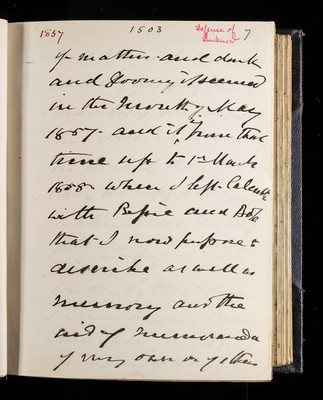 1857
1503
Defence of Lucknow
7
of matters and dark
and gloomy it seemed
in the month of May
1857 - and it is from that
time up to 1st March
1858 - when I left Calcutta
with Bessie and Bob
that I now propose to
describe as well as
memory and the
aid of memoranda
of my own or of others